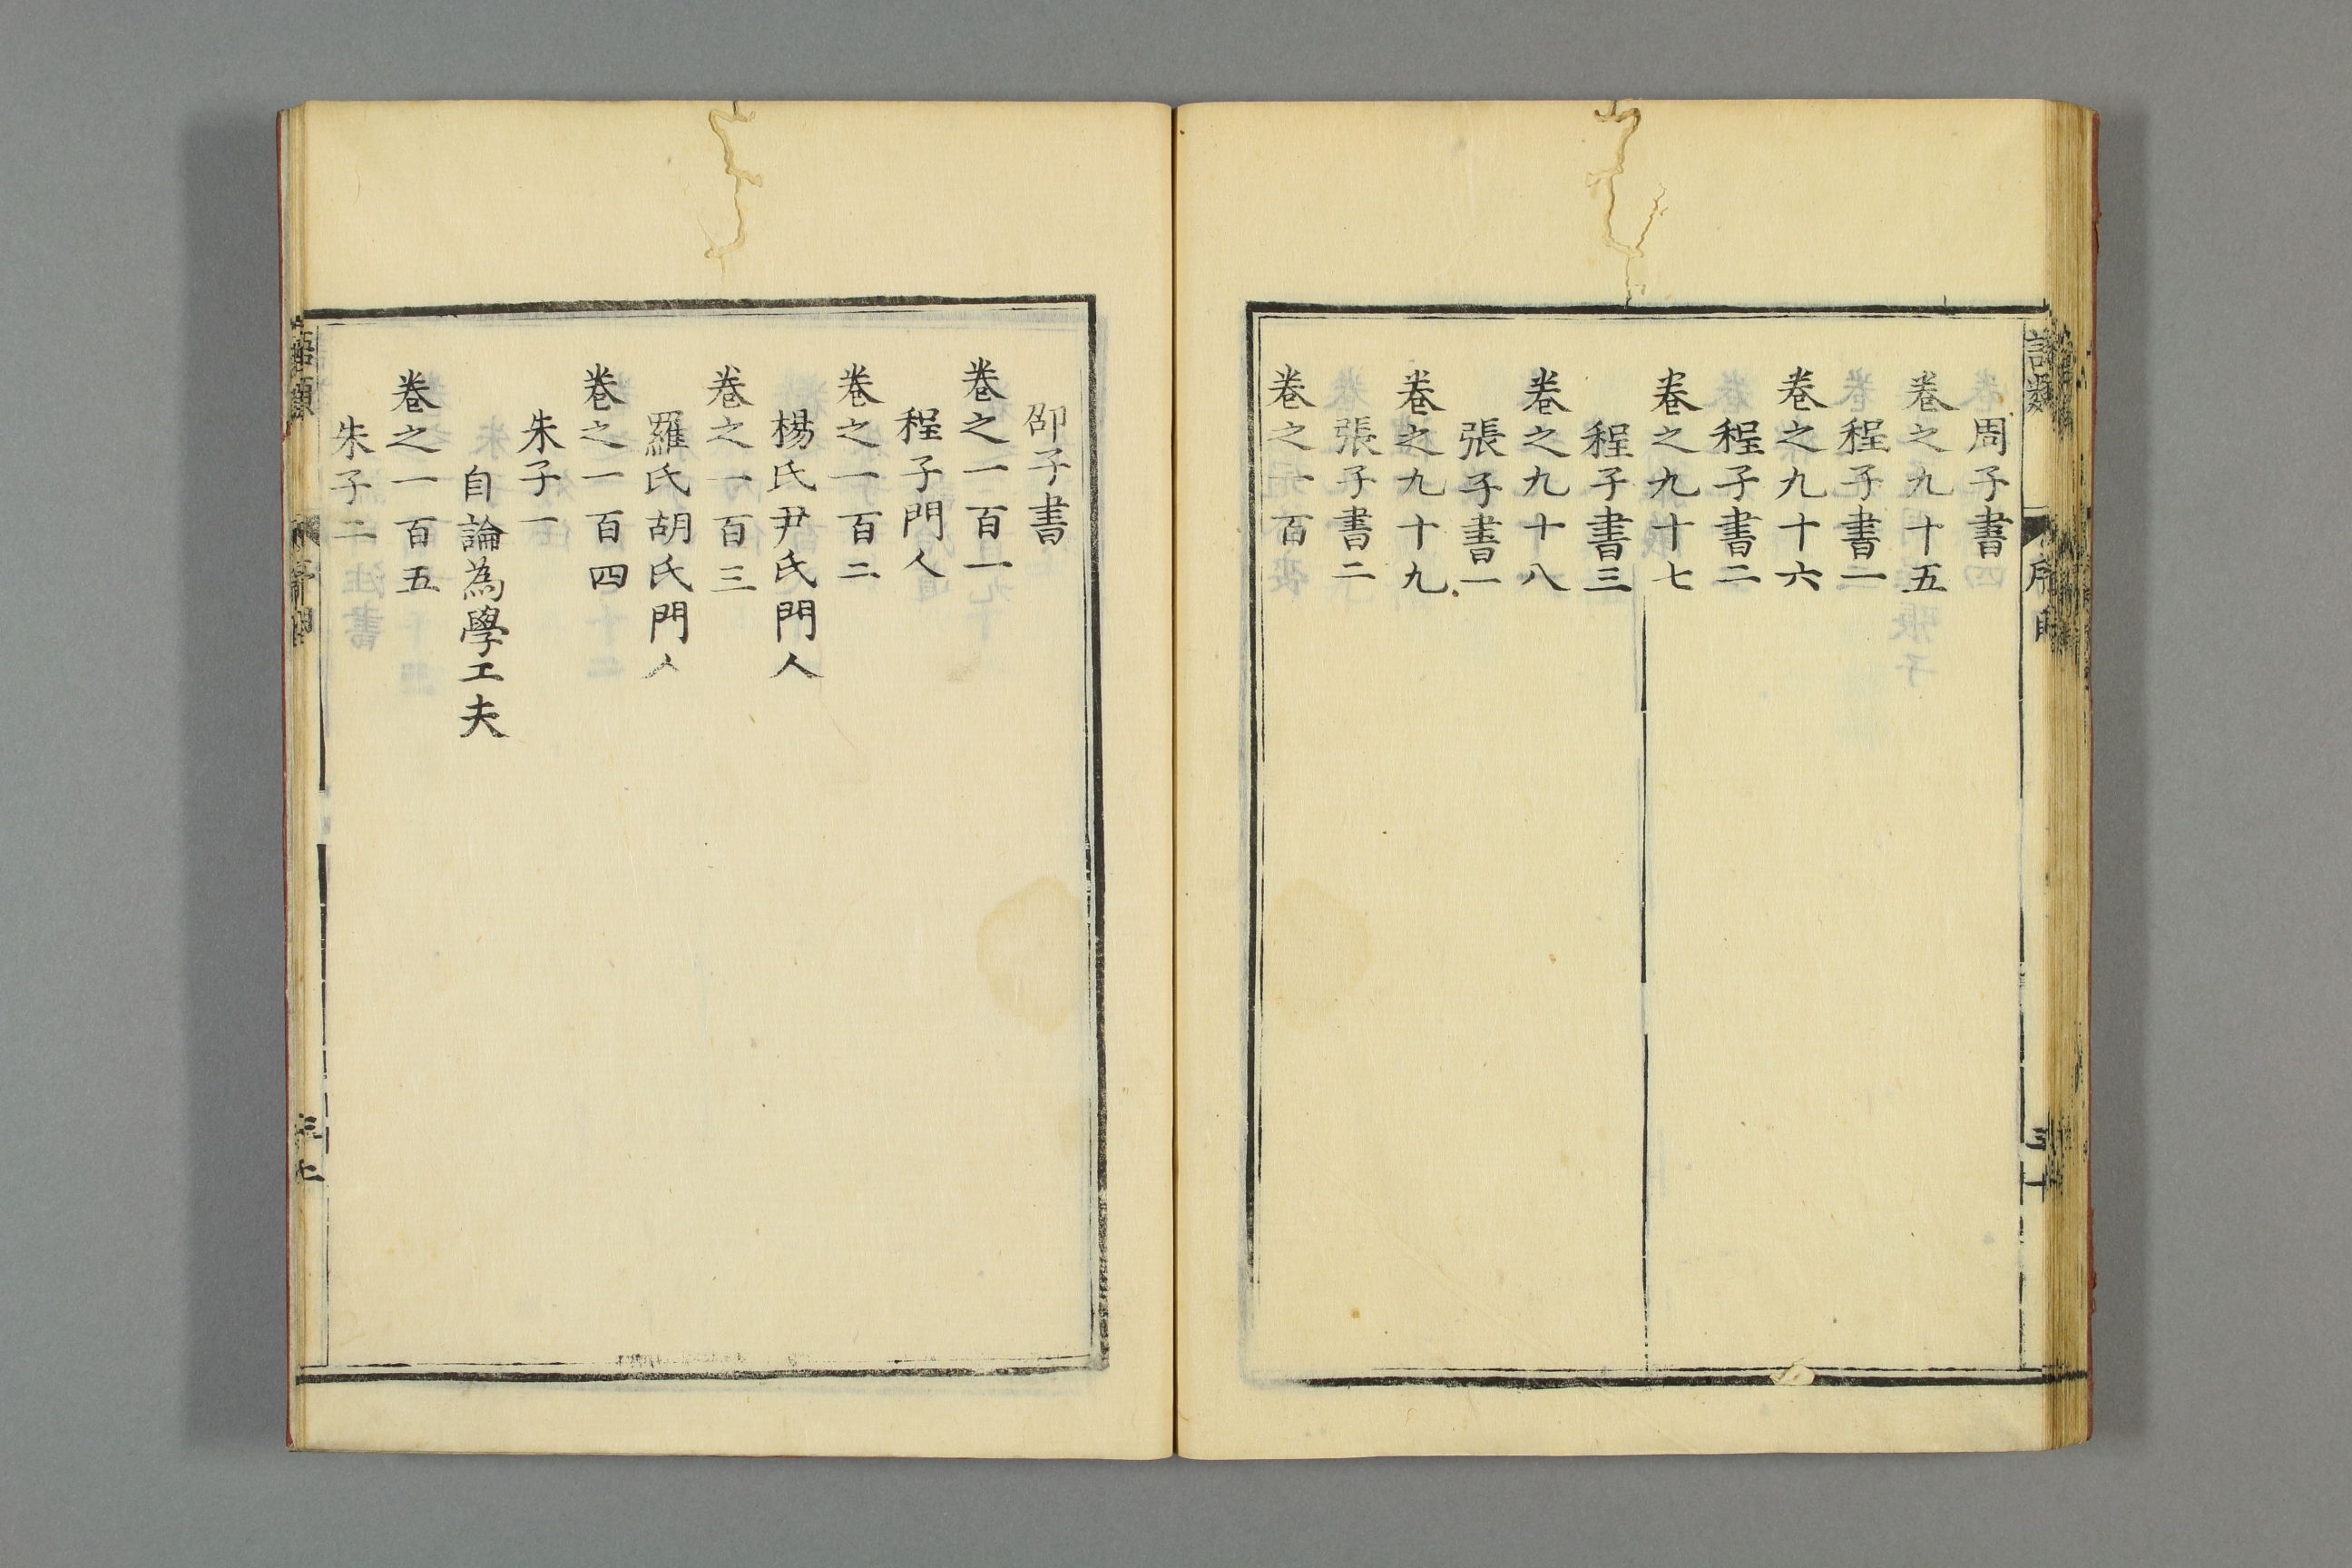 周子書
卷之九十五
程子書一
卷之九十六
程子書二
卷之九十七
程子書三
卷之九十八
張子書一
卷之九十九
張子書二
卷之一百
邵子書
卷之一百一
程子門人
卷之一百二
楊氏尹氏門人
卷之一百三
羅氏胡氏門人
卷之一百四
朱子一
自論為學工夫
卷之一百五
朱子二
語類
三七